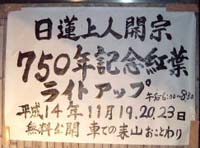 日蓮上人開宗
750年記念紅葉
ライトアップ 午后6:00~8:30
平成14年11月19.20.23日
無料公開 車での来山おことわり